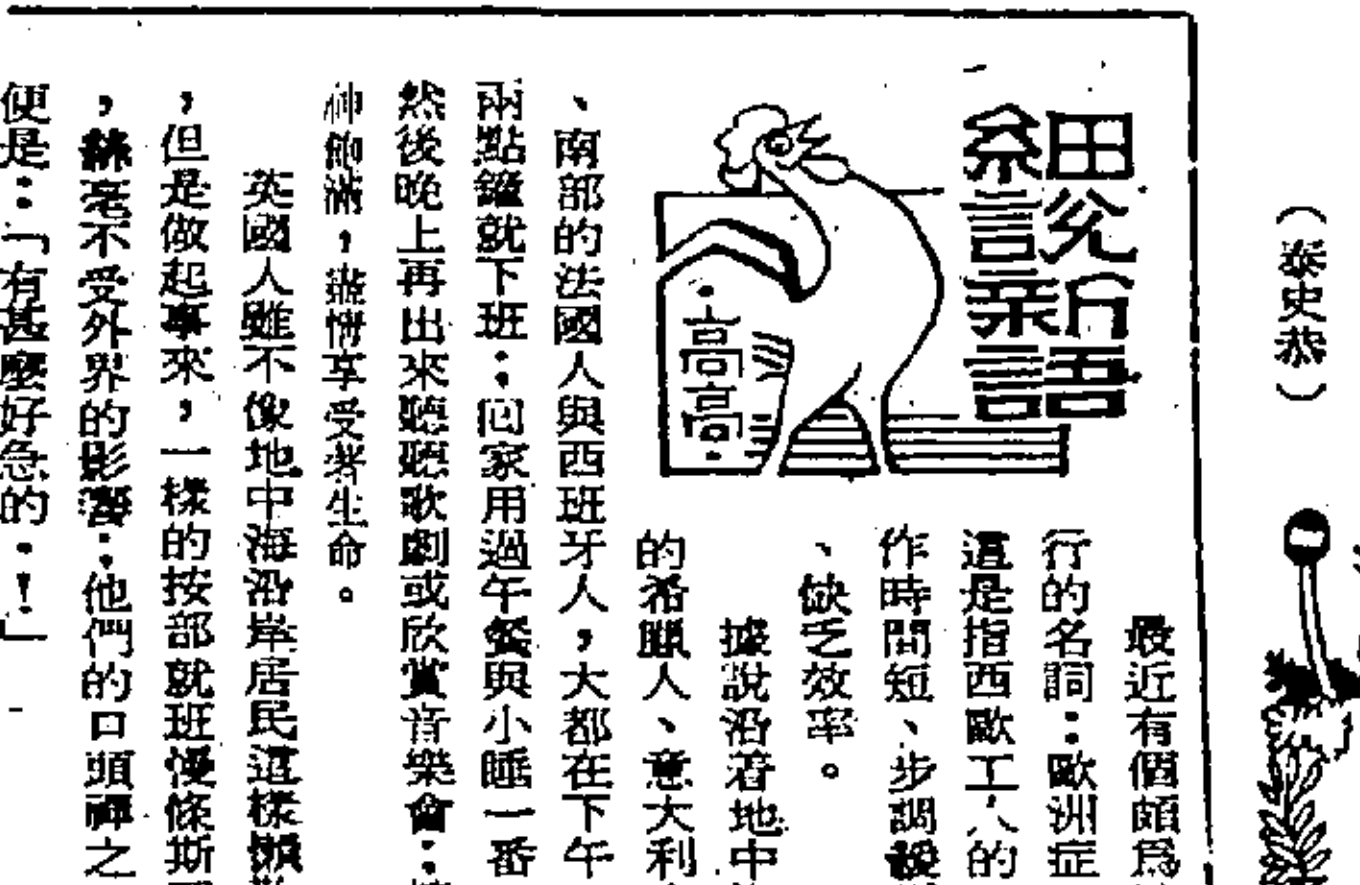 （泰史恭）
細說新語
·高高·
最近有個頗爲
行的名詞：歐洲症
這是指西歐工人的
作時間短、步調緩
、缺乏效率。
據說沿着地中
的希臘人、意大利
、南部的法國人與西班牙人，大都在下午
兩點鐘就下班；回家用過午餐與小睡一番
然後晚上再出來聽聽歌劇或欣賞音樂會；
神飽滿，盡情享受著生命。
英國人雖不像地中海沿岸居民這樣懶
，但是做起事來，一樣的按部就班慢條斯
，絲毫不受外界的影響；他們的口頭禪之
便是：「有甚麼好急的．！」